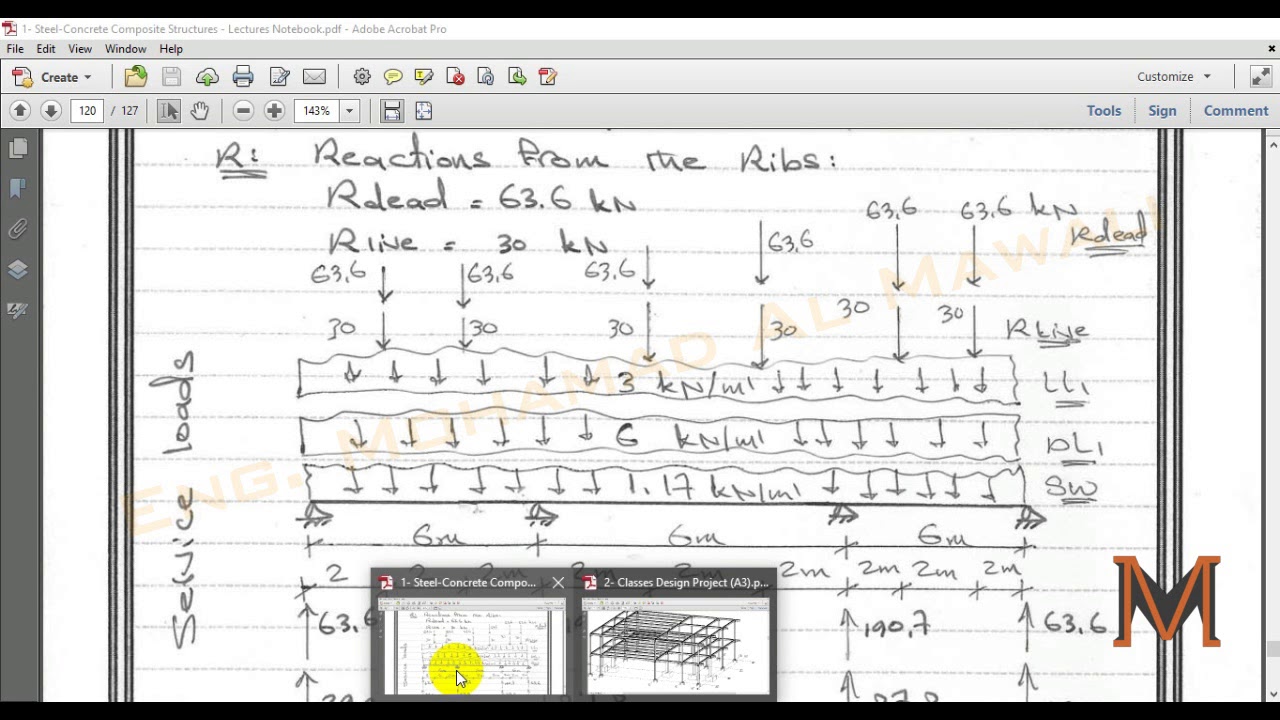 1- Steel-Concrete Composite Structures - Lectures Notebook.pdf - Adobe Acrobat Pro
File Edit View Window Help
Create Customize
120 / 127 143% Tools Sign Comment
R: Reactions from the Ribs:
Rdead = 63.6 kN
63.6 63.6 kN
Rdead
Rlive = 30 kN
63.6
63.6 63.6 63.6
30 30
30 30 30 30 Rlive
3 kN/ml LL1
6 kN/ml DL1
1.17 kN/ml SW
Service Loads
6m 6m 6m
2 2m 2m 2m 2m
63.6 190.7 63.6
ENG. MOHAMAD AL MAWALI
1- Steel-Concrete Compo...
2- Classes Design Project (A3).p...
M